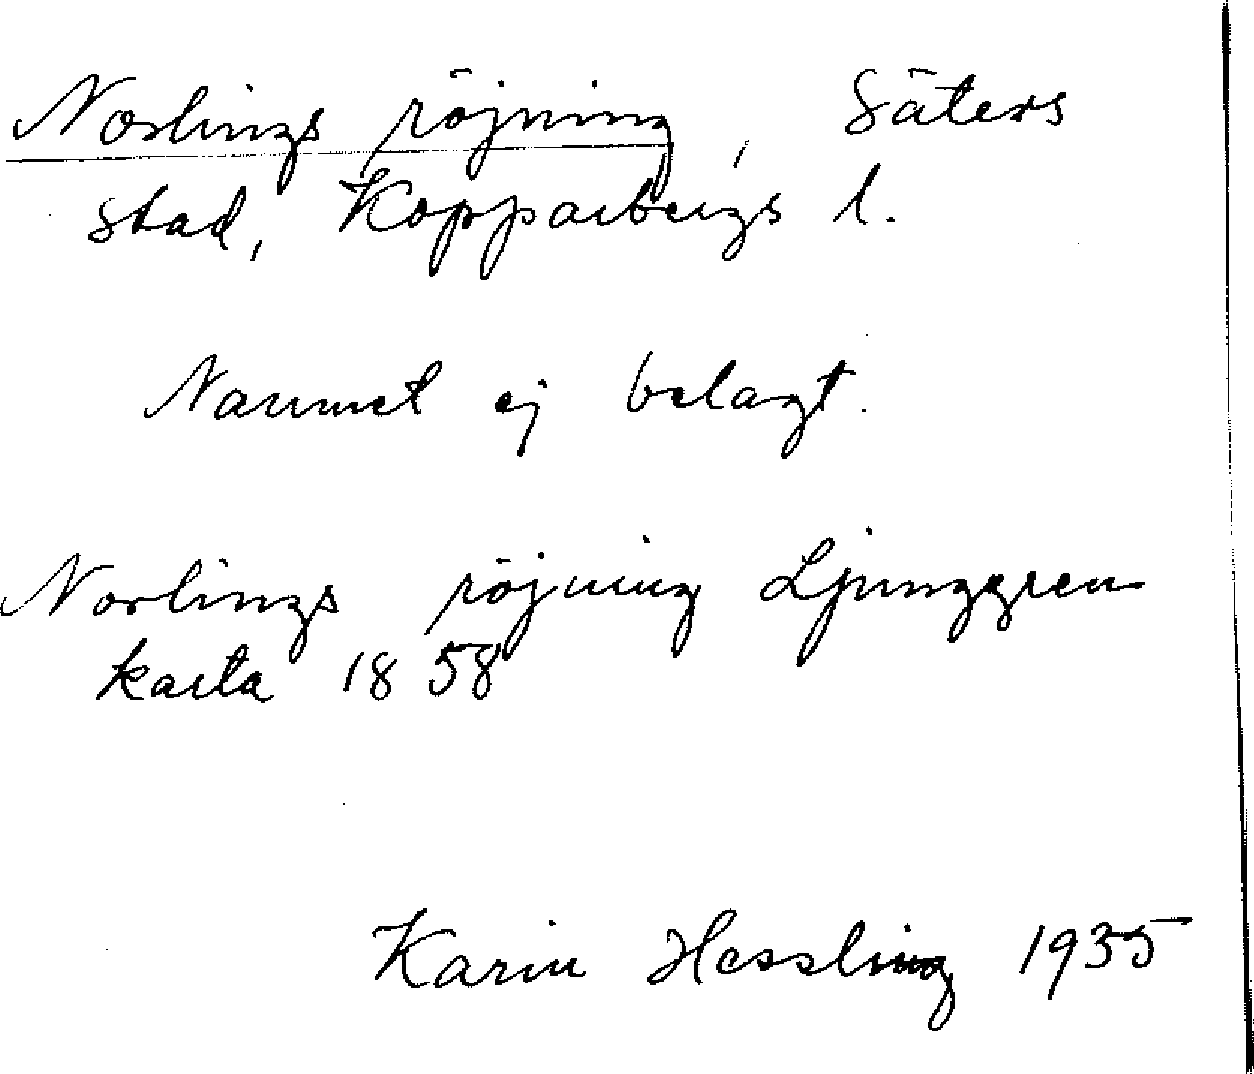 Norlings röjning, Säters
stad, Kopparbergs l.
Namnet ej belagt.
Norlings röjning Ljunggren
karta 1858
Karin Hessling 1935